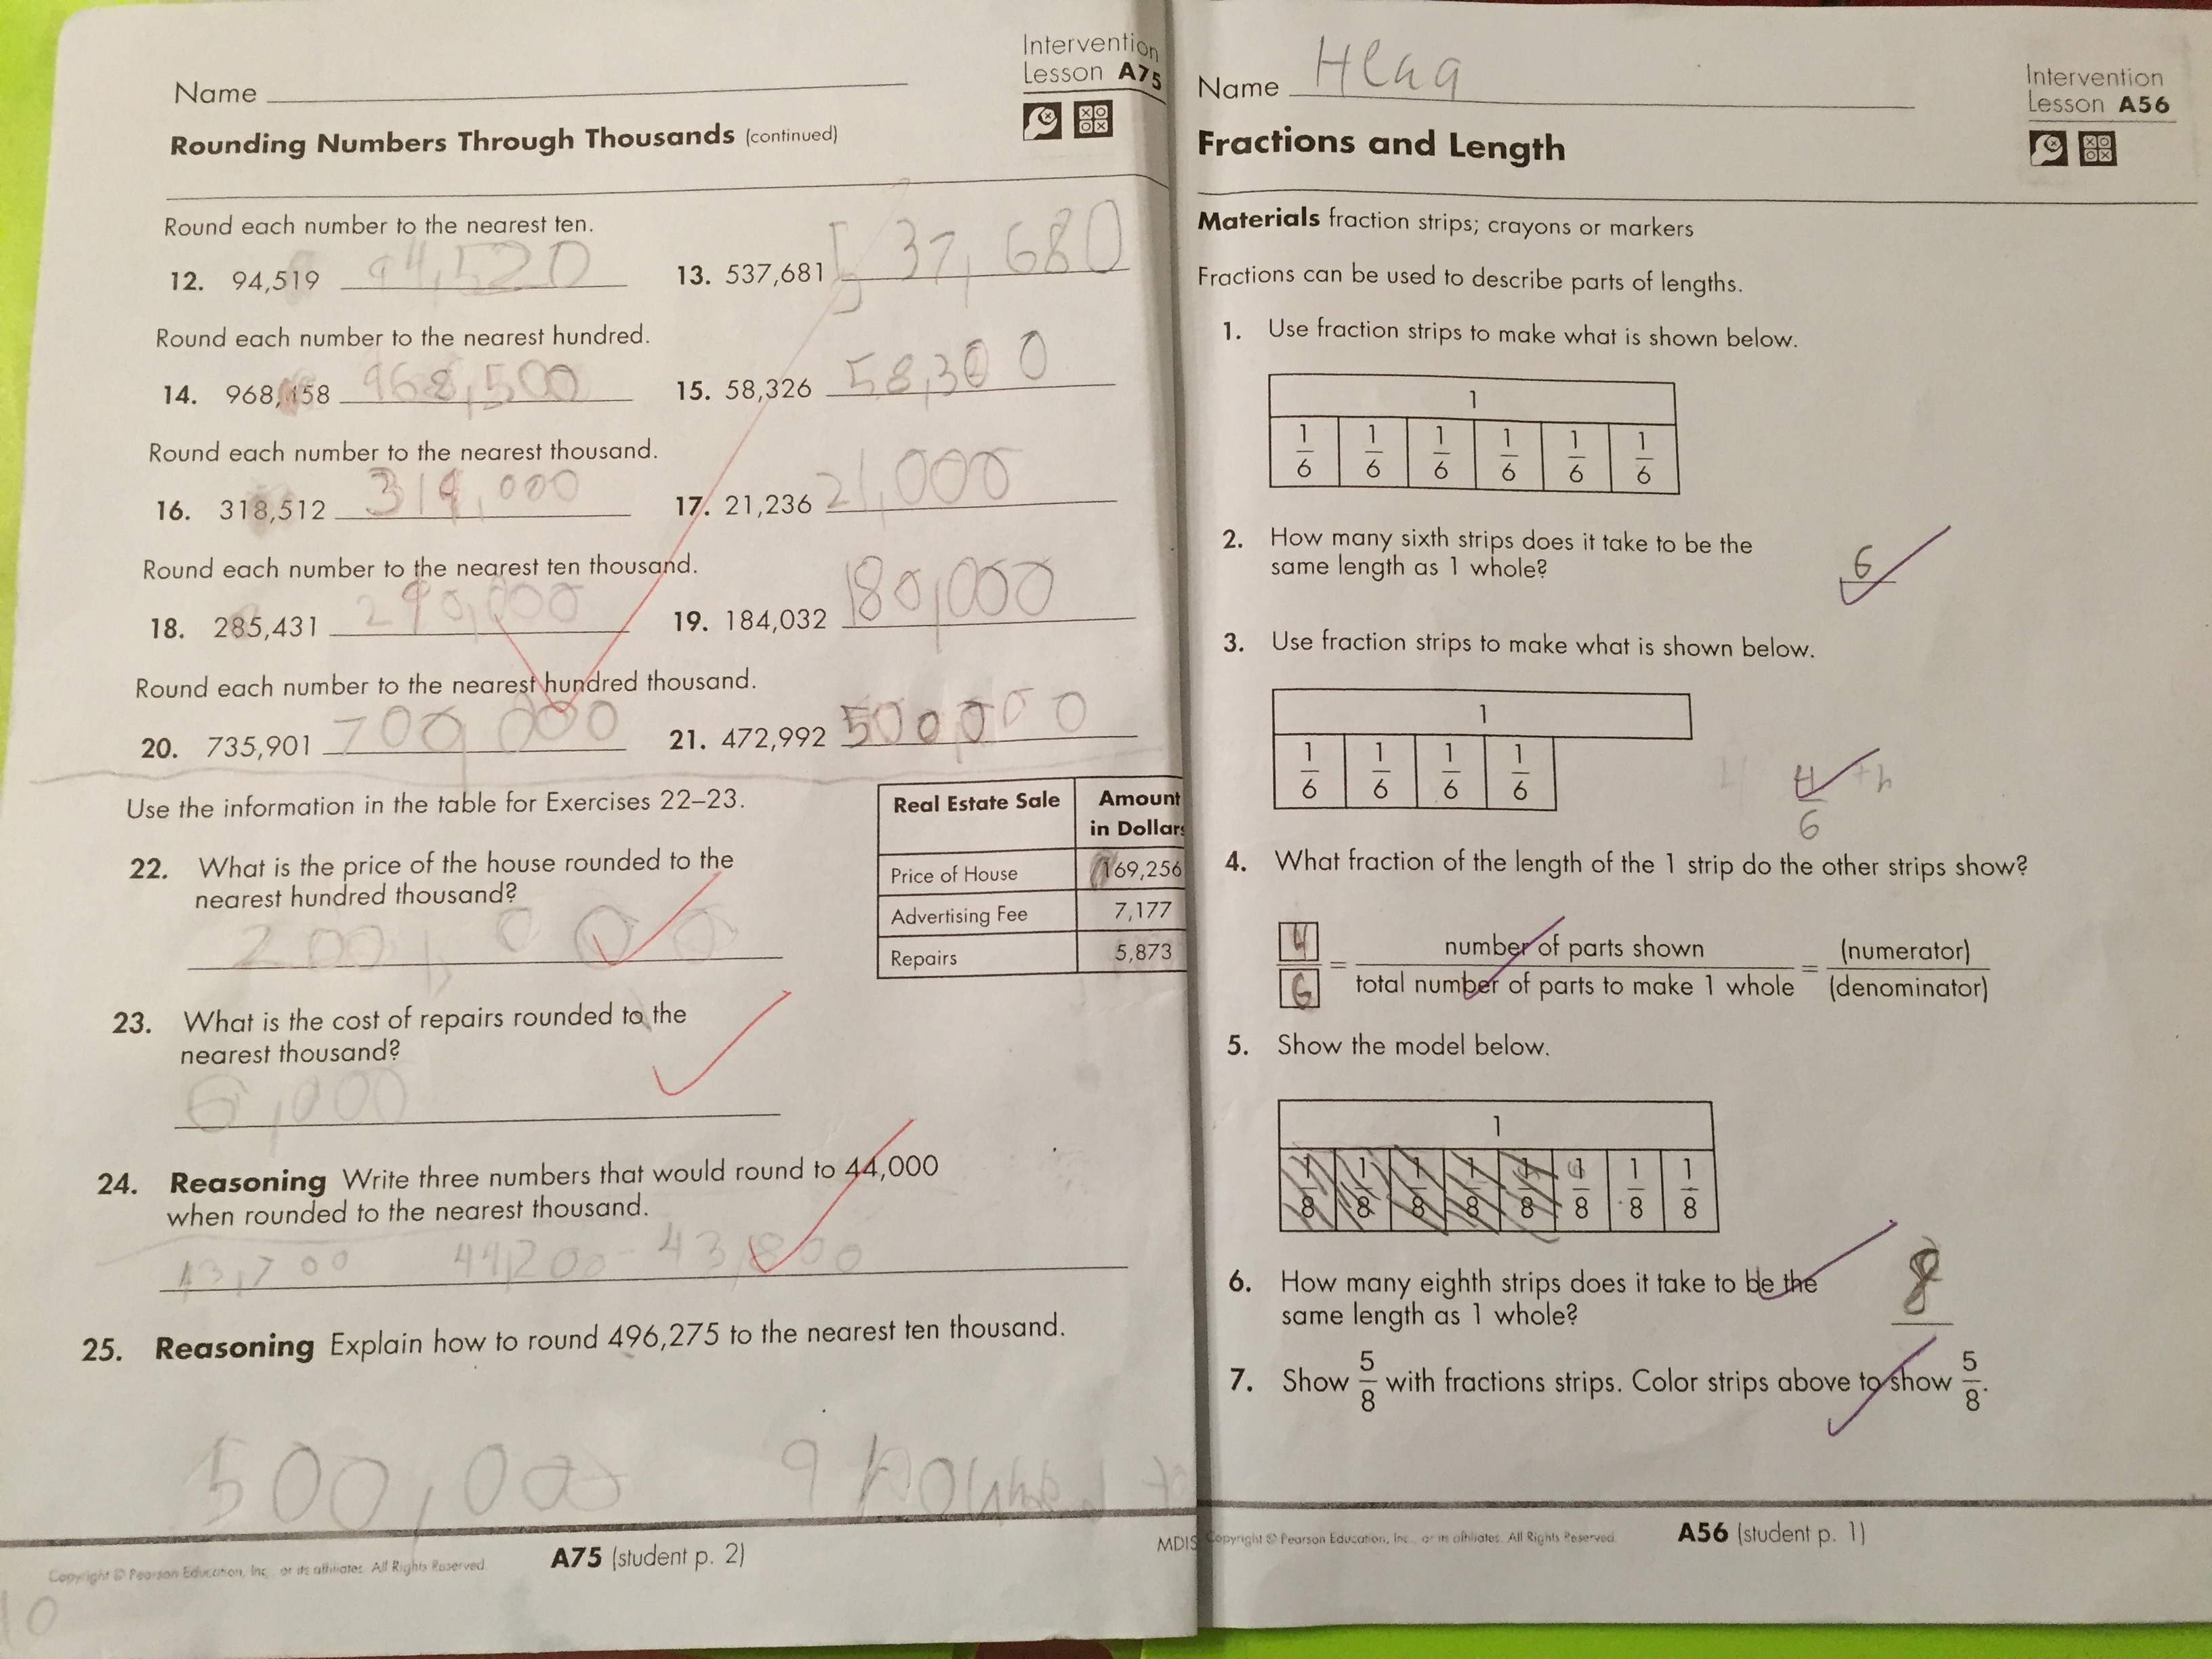 Name
Intervention
Lesson A75
Rounding Numbers Through Thousands (continued)
Round each number to the nearest ten.
12. 94,519 94,520 13. 537,681 537,680
Round each number to the nearest hundred.
14. 968,458 968,500 15. 58,326 58,300
Round each number to the nearest thousand.
16. 318,512 319,000 17. 21,236 21,000
Round each number to the nearest ten thousand.
18. 285,431 290,000 19. 184,032 180,000
Round each number to the nearest hundred thousand.
20. 735,901 700 000 21. 472,992 500,000
Use the information in the table for Exercises 22–23.
Real Estate Sale Amount
in Dollars
Price of House 169,256
Advertising Fee 7,177
Repairs 5,873
22. What is the price of the house rounded to the
nearest hundred thousand?
200,000
23. What is the cost of repairs rounded to the
nearest thousand?
6,000
24. Reasoning Write three numbers that would round to 44,000
when rounded to the nearest thousand.
43,700 44,200 43,800
25. Reasoning Explain how to round 496,275 to the nearest ten thousand.
500,000 9
Copyright © Pearson Education, Inc., or its affiliates. All Rights Reserved.
A75 (student p. 2)
MDIS
10
Name
Intervention
Lesson A56
Fractions and Length
Materials fraction strips; crayons or markers
Fractions can be used to describe parts of lengths.
1. Use fraction strips to make what is shown below.
1
1/6 1/6 1/6 1/6 1/6 1/6
2. How many sixth strips does it take to be the
same length as 1 whole?
6
3. Use fraction strips to make what is shown below.
1
1/6 1/6 1/6 1/6
4/6
4. What fraction of the length of the 1 strip do the other strips show?
4/6 = number of parts shown / total number of parts to make 1 whole = (numerator) / (denominator)
5. Show the model below.
1
1/8 1/8 1/8 1/8 1/8 1/8 1/8 1/8
6. How many eighth strips does it take to be the
same length as 1 whole?
8
7. Show 5/8 with fractions strips. Color strips above to show 5/8.
Copyright © Pearson Education, Inc., or its affiliates. All Rights Reserved.
A56 (student p. 1)